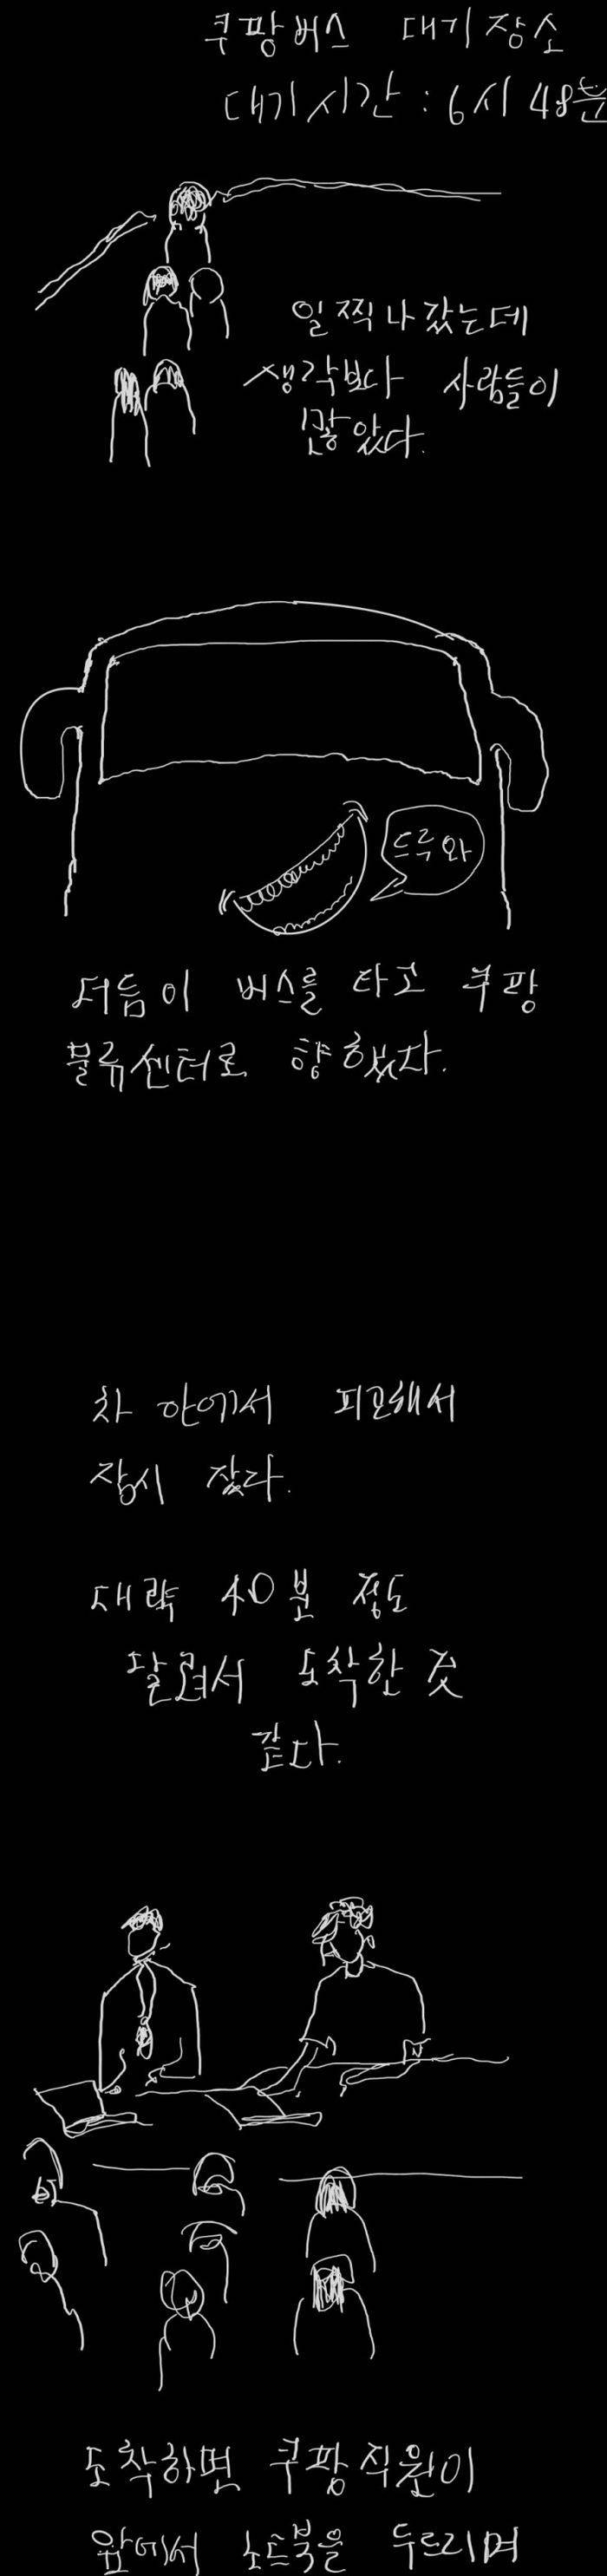 쿠팡버스 대기장소
대기시간 : 6시 48분
일찍 나갔는데
생각보다 사람들이
많았다.
드루와
더듬이 버스를 타고 쿠팡
물류센터로 향했다.
차 안에서 피곤해서
잠시 잤다.
대략 40분 정도
달려서 도착한 것
같다.
도착하면 쿠팡직원이
앞에서 노트북을 두드리며